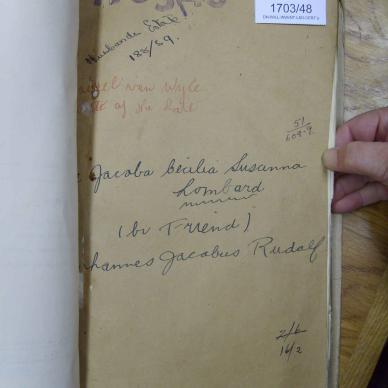 1703/48
Husbands Estate
188/39.
van Wyk
of the Rail
51
608.9
Jacoba Cecilia Susanna
Lombard
(bv Friend)
hannes Jacobus Rudolf
2/6
16/2